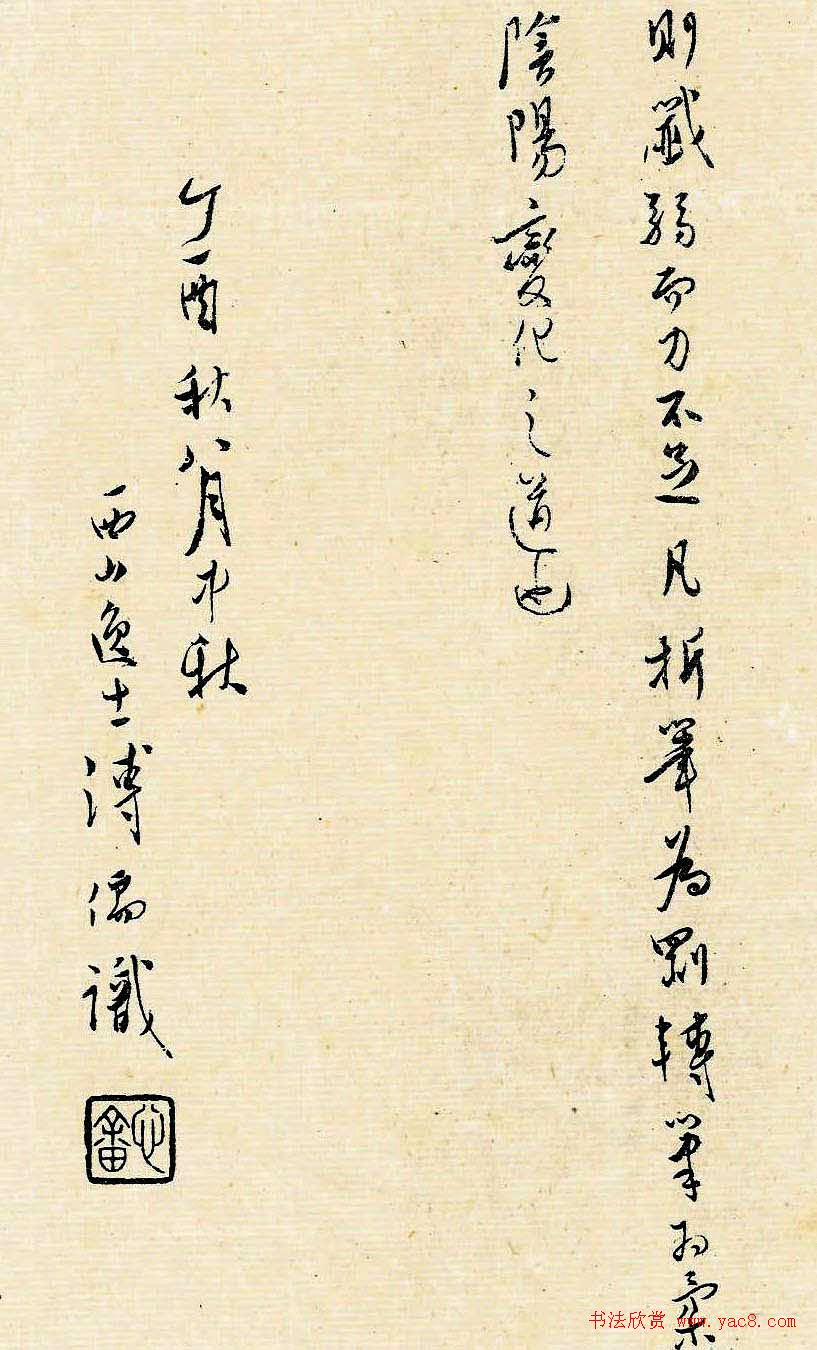 則纖弱而力不足凡折筆為剛轉筆為柔
陰陽變化之道也
丁酉秋八月中秋
西山逸士溥儒識
心畬
书法欣赏 www.yac8.com